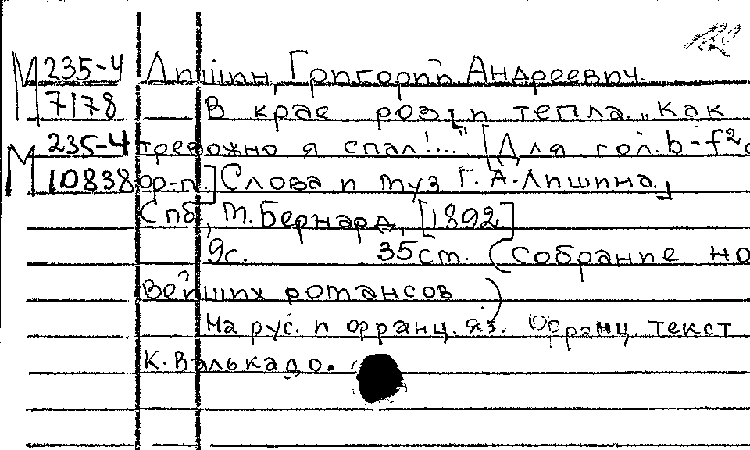 М 235-4 Лишин, Григорий Андреевич.
7178 В крае роз и тепла... Как
М 235-4 тревожно я спал!..." [Для гол. b-f²
10838 ор-п.] Слова и муз Г. А. Лишина.
Спб, М. Бернард, [1892]
9с. 35см. (Собрание но
вейших романсов)
На рус. и франц. яз. Франц. текст
К. Валькадо.